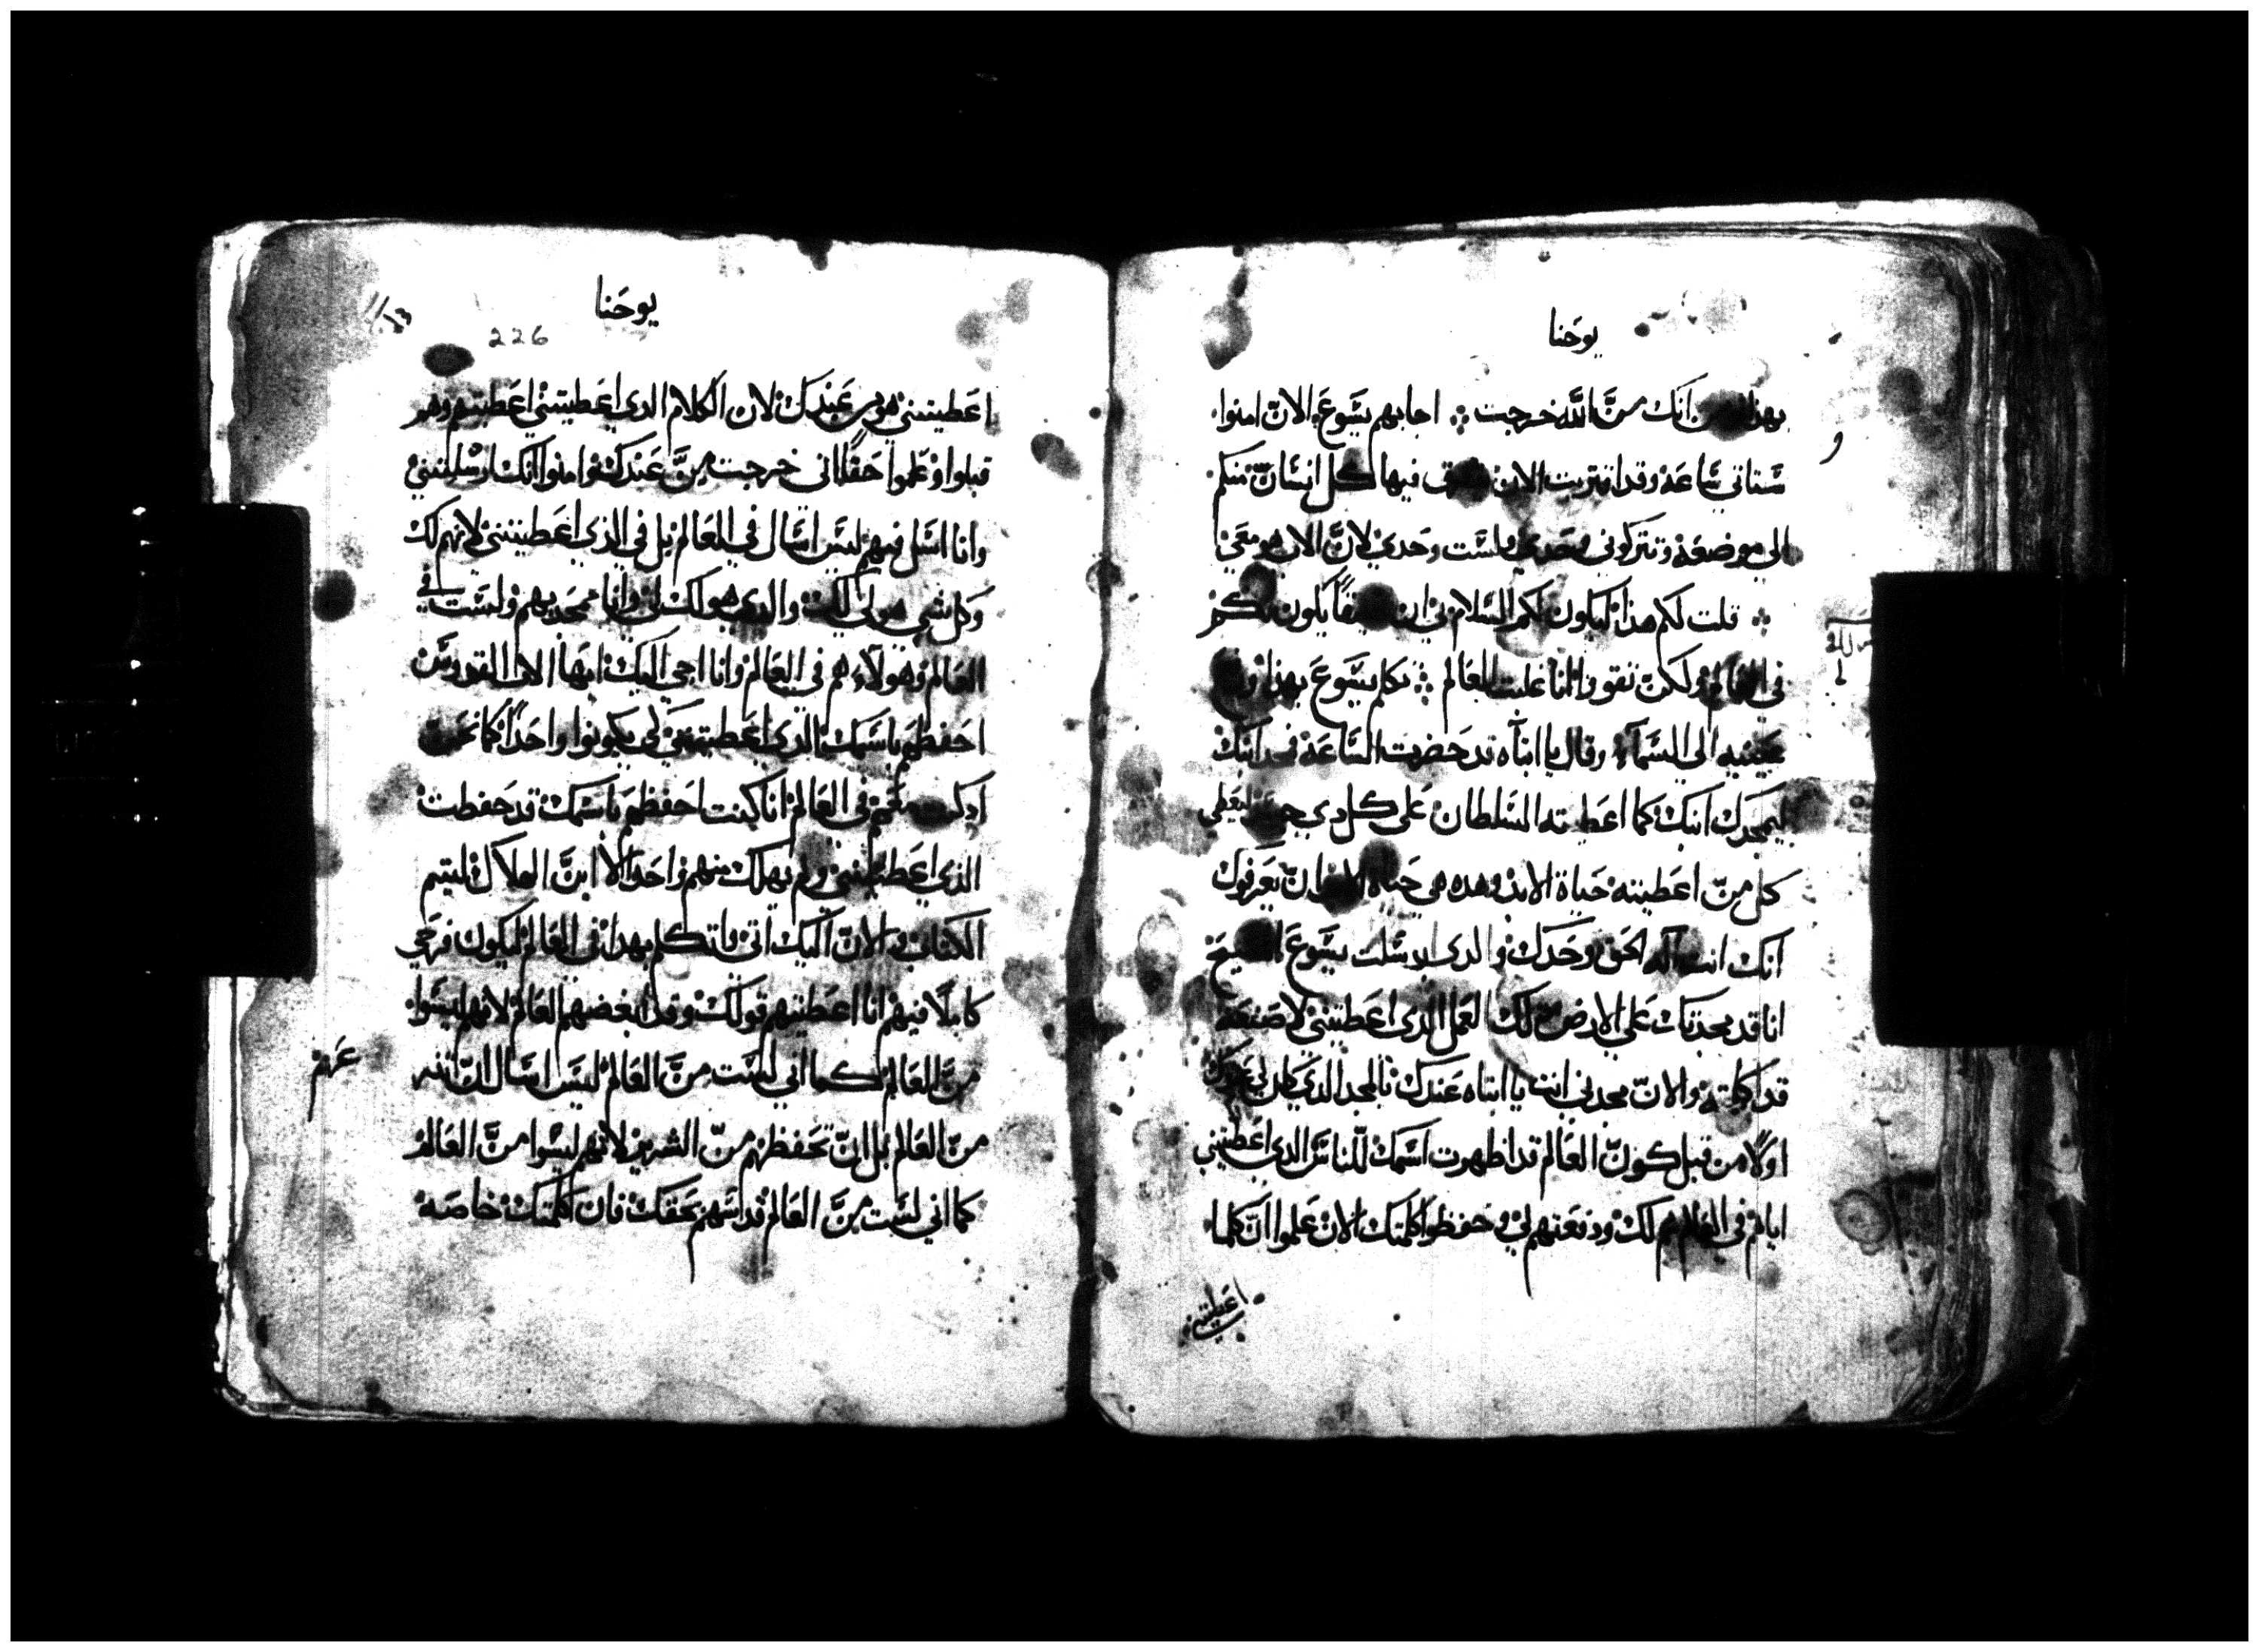 يوحنا
بهذا انك من الله خرجت ۞ اجابهم يسوع الان امنوا
ستاتي ساعه وقد اقتربت الان فيها كل انسان منكم
الي موضعه وتتركوني وحدي ولست وحدي لان الاب هو معي
۞ قلت لكم هذا ليكون لكم السلام في ان يكون لكم
في العالم ولكن تقووا انا غلبت العالم ۞ تكلم يسوع بهذا
عينيه الي السماء وقال يا ابتاه قد حضرت الساعه فمجد ابنك
ليمجدك ابنك كما اعطيته السلطان علي كل دي جسد ليعطي
كل من اعطيته حياة الابد وهده هي حياة الابد ان يعرفوك
انك انت اله الحق وحدك والدي ارسلت يسوع المسيح
انا قد مجدتك علي الارض لك العمل الدي اعطيتني لاصنعه
قد اكملته والان مجدني انت يا ابتاه عندك بالمجد الدي كان لي عندك
اولا من قبل كون العالم قد اظهرت اسمك للناس الدي اعطيتني
اياهم في العالم هم لك ودفعتهم لي وحفظوا كلمتك الان علموا ان كلما
اعطيتني
يوحنا
226
اعطيتني هو من عندك لان الكلام الدي اعطيتني اعطيتهم وهو
قبلوا وعلموا حقا اني خرجت من عندك وامنوا انك ارسلتني
وانا اسل فيهم ليس اسال في العالم بل في الذي اعطيتني لانهم لك
وكل شي هو لي لك والدي هو لك لي وانا ممجد بهم ولست في
العالم وهولاء هم في العالم وانا اجي اليك ايها الاب القدوس
احفظهم باسمك الدي اعطيتني لكي يكونوا واحدا كما نحن
اد كنت معهم في العالم انا كنت احفظهم باسمك قد حفظت
الذي اعطيتني ولم يهلك منهم واحد الا ابن الهلاك ليتم
الكتاب والان اليك اتي واتكلم بهدا في العالم ليكون فرحي
كاملا فيهم انا اعطيتهم قولك وقد ابغضهم العالم لانهم ليسوا
من العالم كما اني لست من العالم ليس اسال ان
عهم
من العالم بل ان تحفظهم من الشرير لانهم ليسوا من العالم
كما اني لست من العالم قدسهم بحقك فان كلمتك خاصه